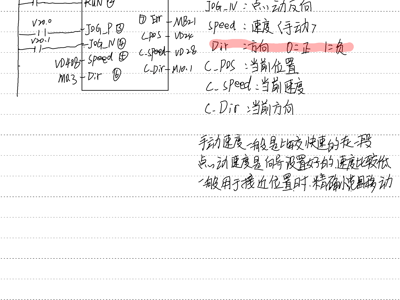 RUN
V20.0
JOG_P
V20.1
JOG_N
VD408 Speed
M0.3 Dir
Err MB21
C_POS VD24
C_Speed VD28
C_Dir M10.1
JOG_N：点动反向
Speed：速度（手动）
Dir：方向 0=正 1=负
C_POS：当前位置
C_Speed：当前速度
C_Dir：当前方向
手动速度一般是比较快速的在一段
点动速度是向导设置好的，速度比较低
一般用于接近位置时 精确 移动